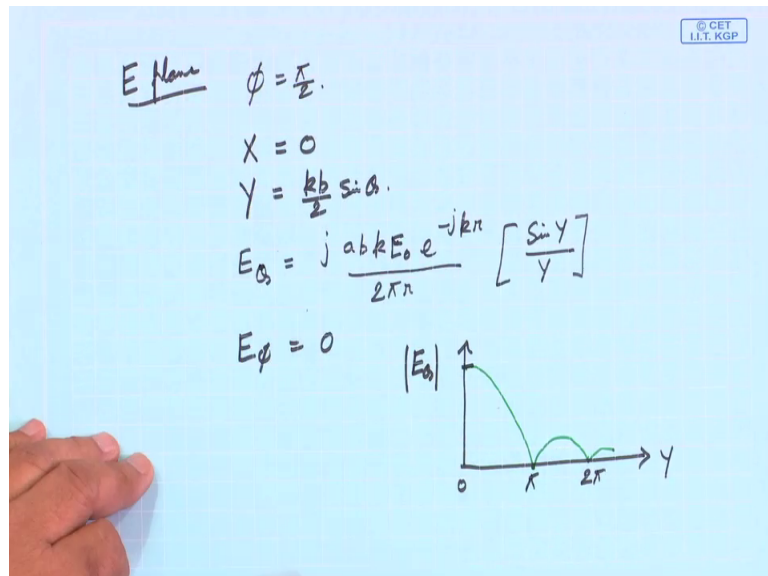 © CET
I.I.T. KGP
E plane φ = π/2.
X = 0
Y = kb/2 sin θ.
E_θ = j abkE₀ e^{-jkr} / 2πr [ sin Y / Y ]
E_φ = 0
|E_θ|
0 π 2π Y